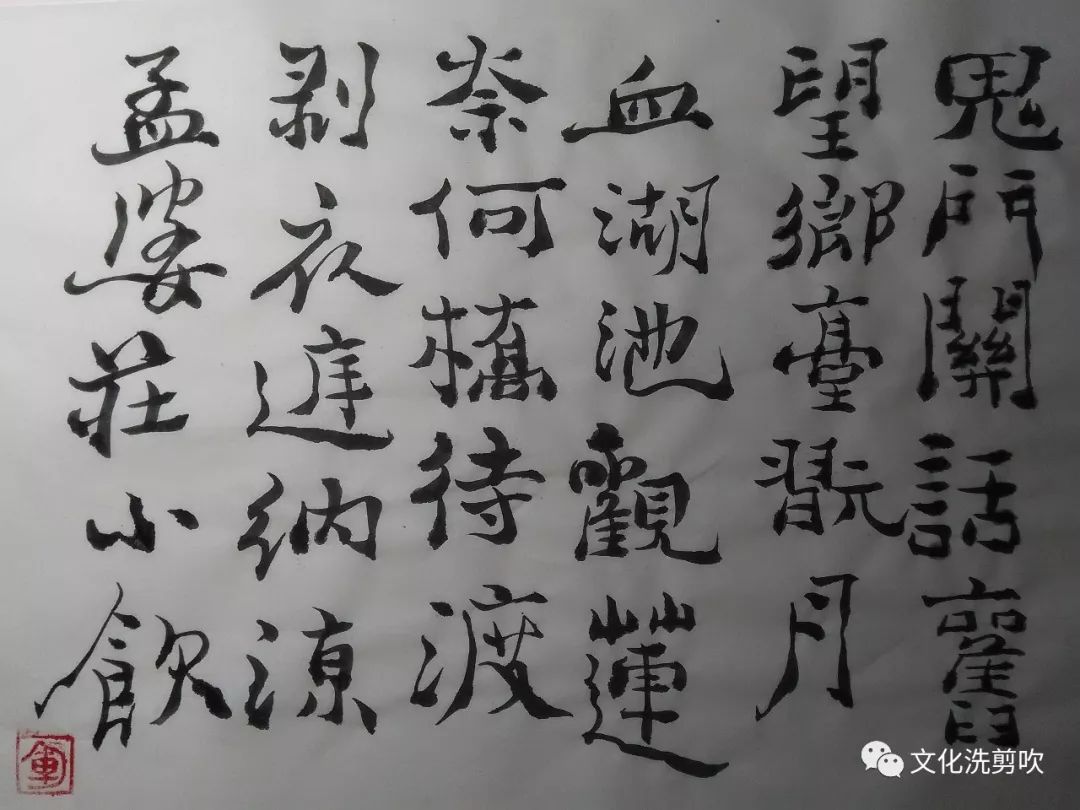 鬼門關話舊
望鄉臺翫月
血湖池觀蓮
奈何橋待渡
剥衣庭納涼
孟婆莊小飲
文化洗剪吹